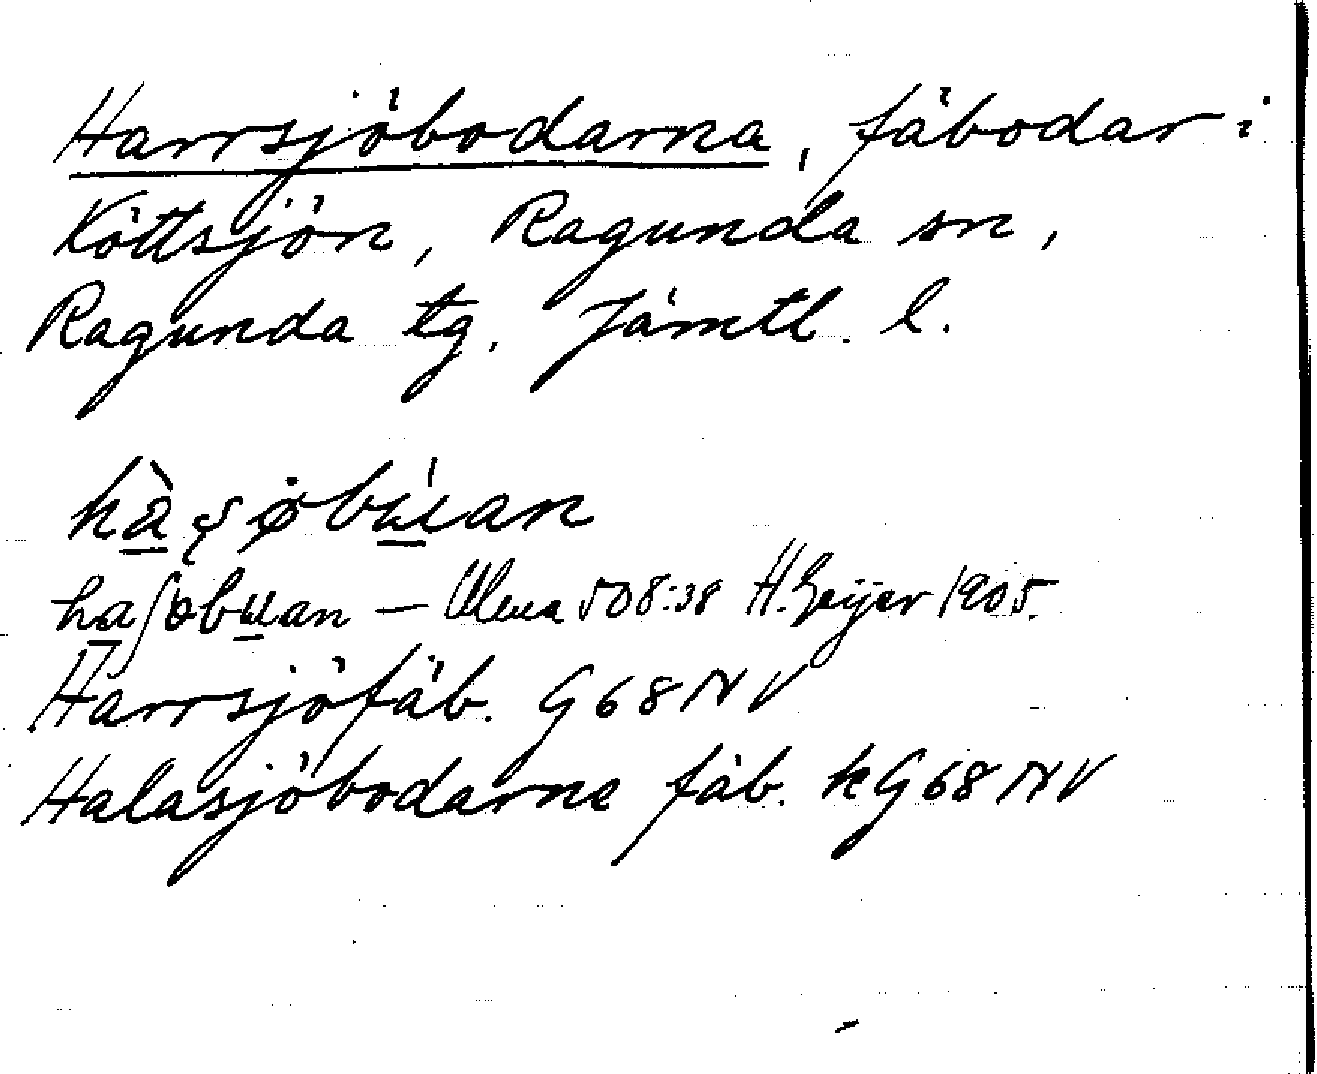 Harrsjöbodarna, fäbodar i
Köttsjön, Ragunda sn,
Ragunda tg. Jämtl. l.
hàʂøbúan
haʃøbuan — Ulma 508:38 H. Geijer 1905.
Harrsjöfäb. G68NV
Halasjöbodarne fäb. kG68NV